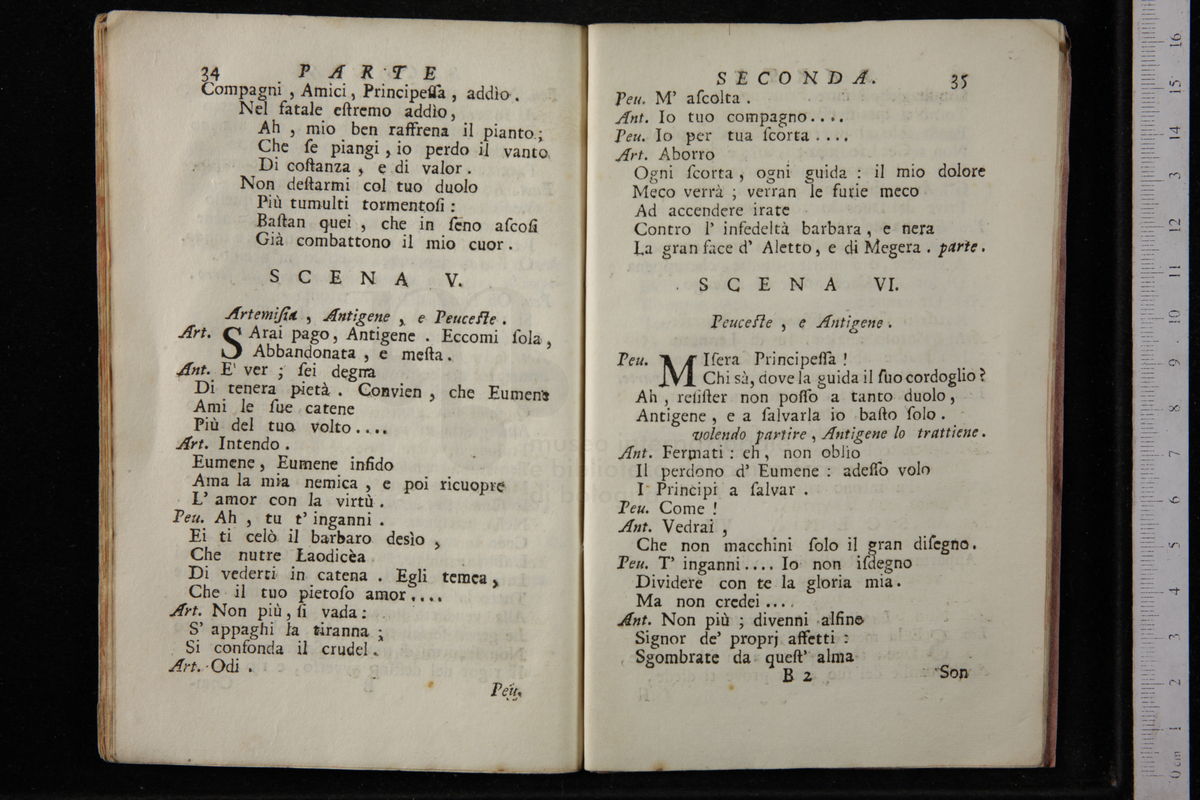 34 PARTE
Compagni , Amici, Principeſſa , addìo .
Nel fatale eſtremo addìo,
Ah , mio ben raffrena il pianto ;
Che ſe piangi , io perdo il vanto
Di coſtanza , e di valor .
Non deſtarmi col tuo duolo
Più tumulti tormentoſi :
Baſtan quei , che in ſeno aſcoſi
Già combattono il mio cuor .
SCENA V.
Artemiſia , Antigene , e Peuceſte .
Art. SArai pago, Antigene . Eccomi ſola ,
Abbandonata , e meſta .
Ant. E' ver ; ſei degna
Di tenera pietà . Convien , che Eumene
Ami le ſue catene
Più del tuo volto ....
Art. Intendo .
Eumene , Eumene infido
Ama la mia nemica , e poi ricuopre
L' amor con la virtù .
Peu. Ah , tu t' inganni .
Ei ti celò il barbaro desìo ,
Che nutre Laodicèa
Di vederti in catena . Egli temea ,
Che il tuo pietoſo amor ....
Art. Non più, ſi vada :
S' appaghi la tiranna ;
Si confonda il crudel .
Art. Odi .
Peu.
SECONDA. 35
Peu. M' aſcolta .
Ant. Io tuo compagno ....
Peu. Io per tua ſcorta ....
Art. Aborro
Ogni ſcorta , ogni guida : il mio dolore
Meco verrà ; verran le furie meco
Ad accendere irate
Contro l' infedeltà barbara , e nera
La gran face d' Aletto , e di Megera . parte .
SCENA VI.
Peuceſte , e Antigene .
Peu. MIſera Principeſſa !
Chi sà, dove la guida il ſuo cordoglio ?
Ah , reſiſter non poſſo a tanto duolo ,
Antigene , e a ſalvarla io baſto ſolo .
volendo partire , Antigene lo trattiene .
Ant. Fermati : eh , non oblìo
Il perdono d' Eumene : adeſſo volo
I Principi a ſalvar .
Peu. Come !
Ant. Vedrai ,
Che non macchini ſolo il gran diſegno .
Peu. T' inganni .... Io non iſdegno
Dividere con te la gloria mia .
Ma non credei ....
Ant. Non più ; divenni alfine
Signor de' proprj affetti :
Sgombrate da queſt' alma
B 2 Son